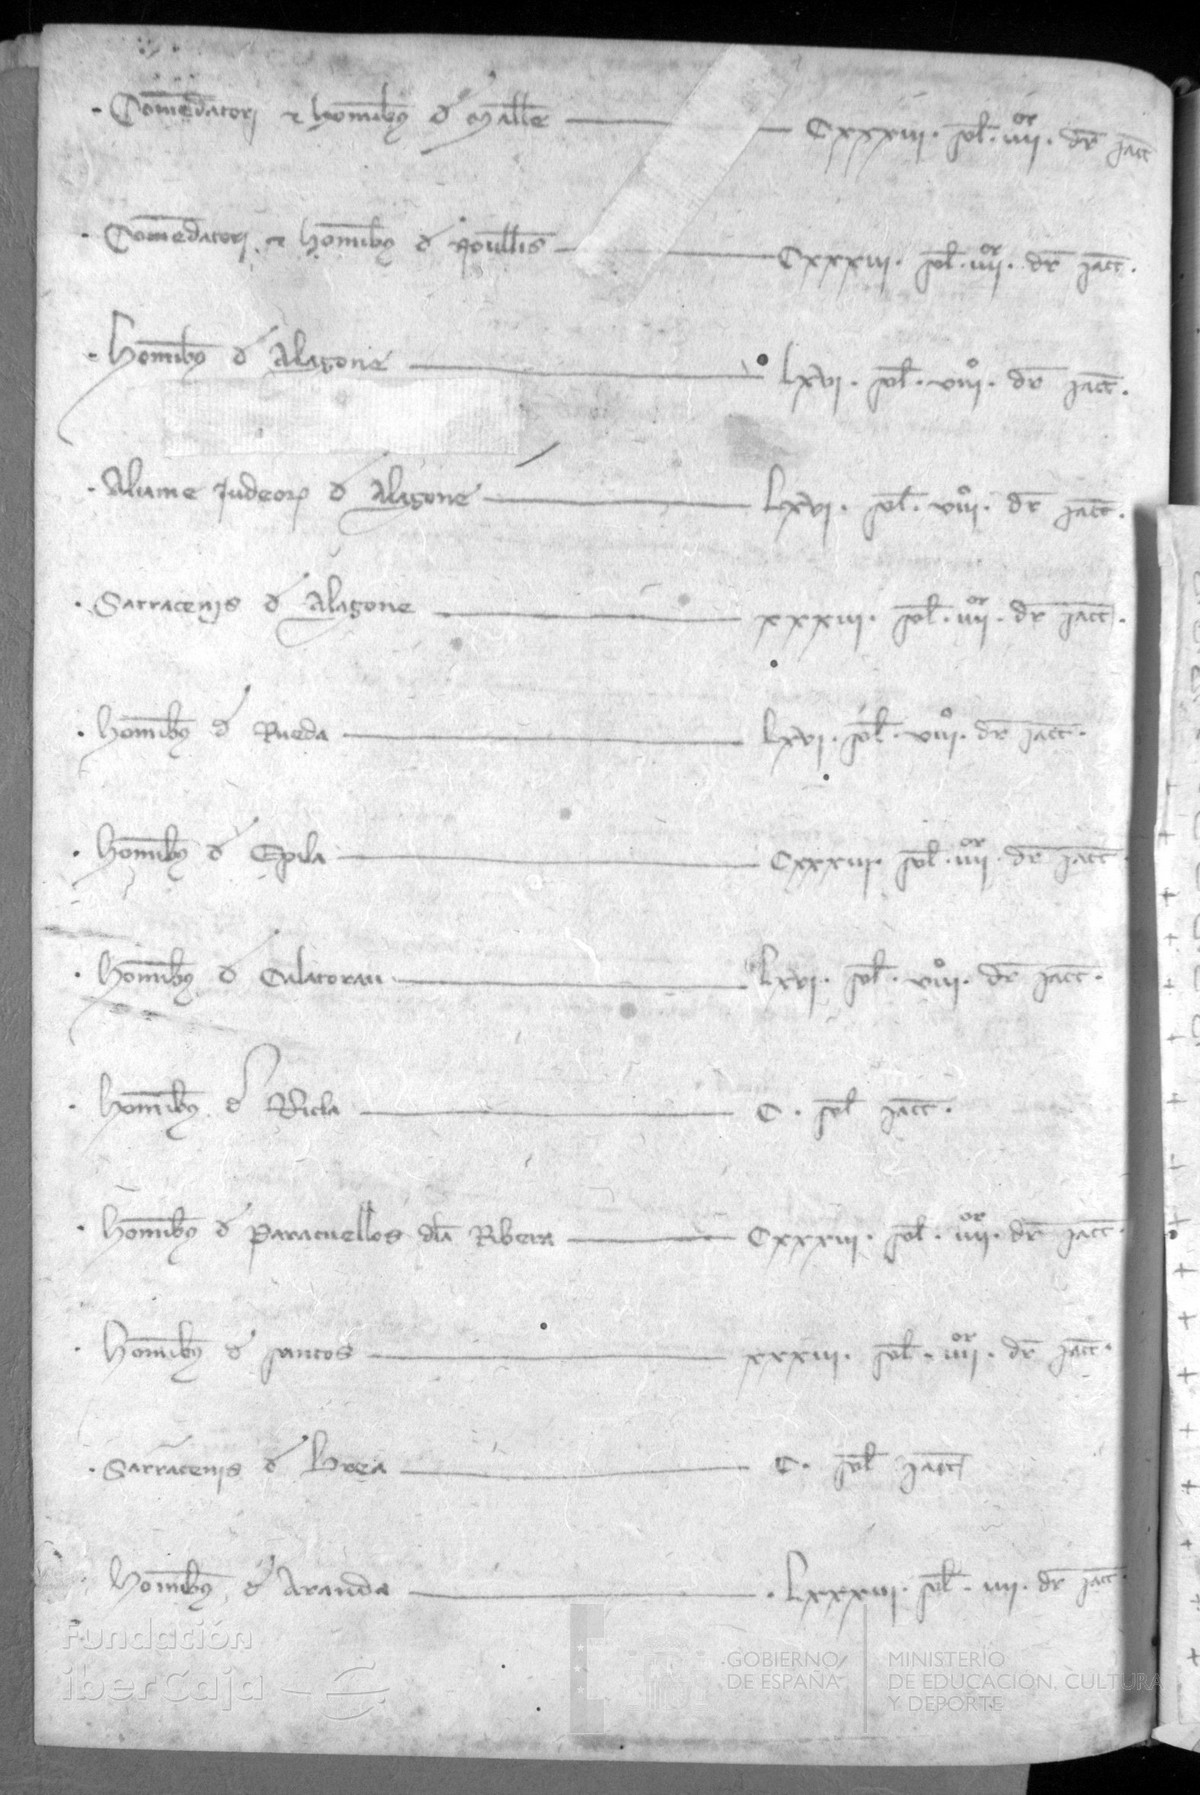 · Comendatori et hominibus de Mallen — Cxxxiii · sol · iiii or · dr jacc
· Comendatori et hominibus de Noullis — Cxxxiii · sol · iiii or · dr jacc ·
· hominibus de Alagone — Lxvi · sol · viii o · dr jacc ·
· Aliame Judeorum de Alagone — Lxvi · sol · viii o · dr jacc ·
· Sarracenis de Alagone — xxxiii · sol · iiii or · dr jacc ·
· hominibus de Rueda — Lxvi · sol · viii o · dr jacc ·
· hominibus de Epila — Cxxxiii · sol · iiii or · dr jacc ·
· hominibus de Calatorau — Lxvi · sol · viii o · dr jacc ·
· hominibus de Ricla — C · sol jacc ·
· hominibus de Paracuellos dla Ribera — Cxxxiii · sol · iiii or · dr jacc ·
· hominibus de santos — xxxiii · sol · iiii or · dr jacc ·
· Sarracenis de Brea — C · sol jacc
· hominibus de Aranda — · Lxxxiii · sol · iiii · dr jacc ·
Fundación
iberCaja
GOBIERNO
DE ESPAÑA
MINISTERIO
DE EDUCACIÓN, CULTURA
Y DEPORTE